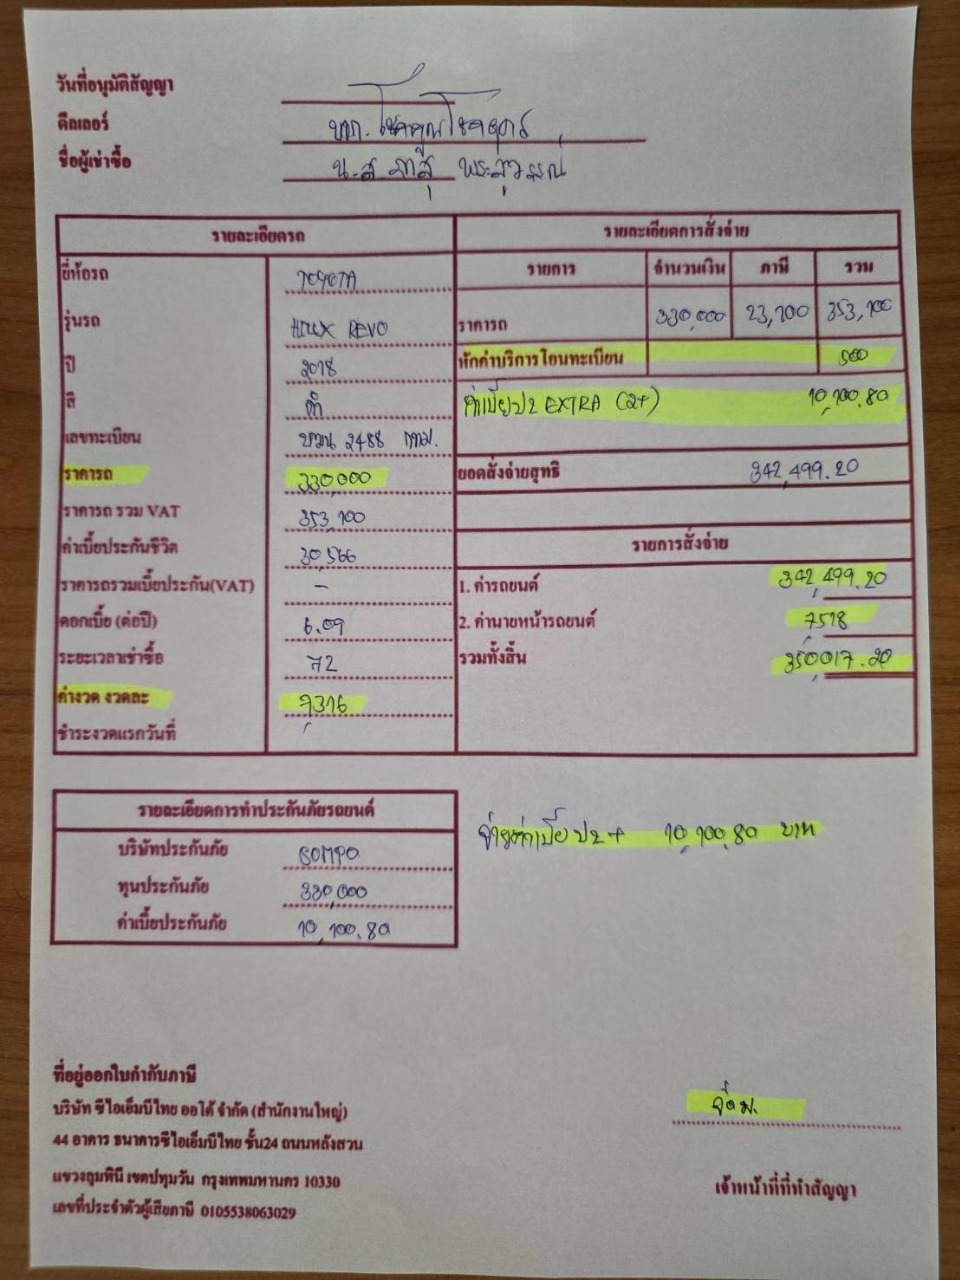 วันที่อนุมัติสัญญา
ดีลเลอร์ หจก. โชคคูณโชค
ชื่อผู้เช่าซื้อ น.ส. ภาสุ
รายละเอียดรถ
ยี่ห้อรถ TOYOTA
รุ่นรถ HILUX REVO
ปี 2018
สี ดำ
เลขทะเบียน 2488 กทม.
ราคารถ 330,000
ราคารถ รวม VAT 353,100
ค่าเบี้ยประกันชีวิต 30,566
ราคารถรวมเบี้ยประกัน(VAT) -
ดอกเบี้ย (ต่อปี) 6.09
ระยะเวลาเช่าซื้อ 72
ค่างวด งวดละ 7,316
ชำระงวดแรกวันที่
รายละเอียดการสั่งจ่าย
รายการ จำนวนเงิน ภาษี รวม
ราคารถ 330,000 23,100 353,100
หักค่าบริการโอนทะเบียน 500
ค่าเบี้ยป2 EXTRA (2+) 10,100.80
ยอดสั่งจ่ายสุทธิ 342,499.20
รายการสั่งจ่าย
1. ค่ารถยนต์ 342,499.20
2. ค่านายหน้ารถยนต์ 7,518
รวมทั้งสิ้น 350,017.20
รายละเอียดการทำประกันภัยรถยนต์
บริษัทประกันภัย SOMPO
ทุนประกันภัย 330,000
ค่าเบี้ยประกันภัย 10,100.80
จ่ายค่าเบี้ย ป2+ 10,100.80 บาท
ที่อยู่ออกใบกำกับภาษี
บริษัท ซีไอเอ็มบีไทย ออโต้ จำกัด (สำนักงานใหญ่)
44 อาคาร ธนาคารซีไอเอ็มบีไทย ชั้น24 ถนนหลังสวน
แขวงลุมพินี เขตปทุมวัน กรุงเทพมหานคร 10330
เลขที่ประจำตัวผู้เสียภาษี 0105538063029
เจ้าหน้าที่ที่ทำสัญญา